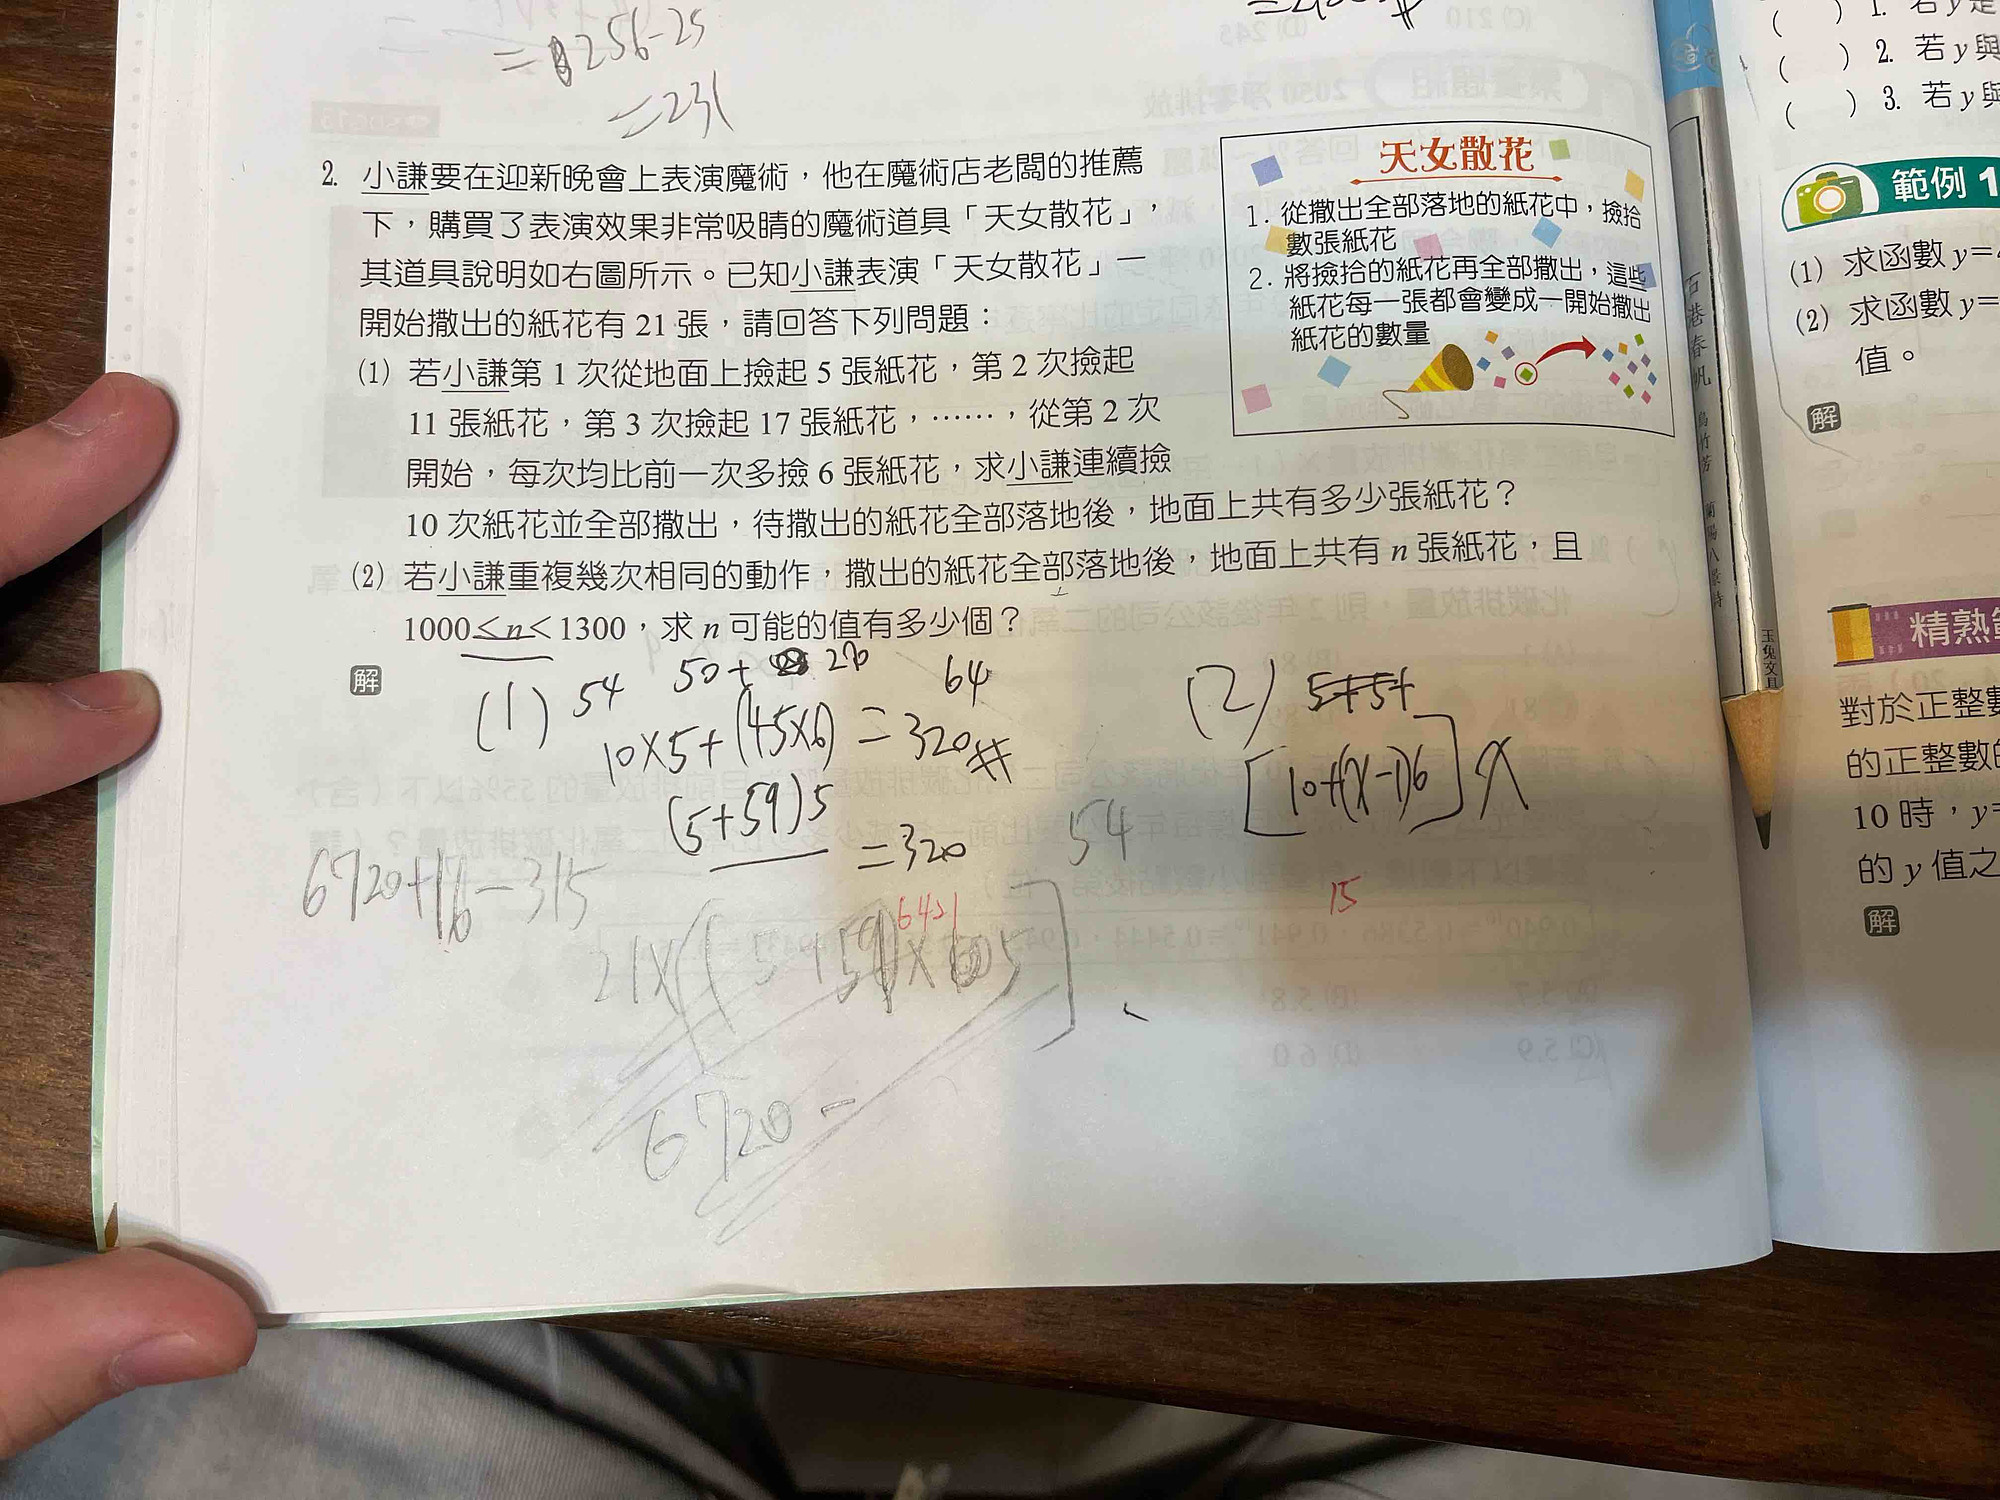 =256-25
=231
2. 小謙要在迎新晚會上表演魔術，他在魔術店老闆的推薦
下，購買了表演效果非常吸睛的魔術道具「天女散花」，
其道具說明如右圖所示。已知小謙表演「天女散花」一
開始撒出的紙花有 21 張，請回答下列問題：
(1) 若小謙第 1 次從地面上撿起 5 張紙花，第 2 次撿起
11 張紙花，第 3 次撿起 17 張紙花，……，從第 2 次
開始，每次均比前一次多撿 6 張紙花，求小謙連續撿
10 次紙花並全部撒出，待撒出的紙花全部落地後，地面上共有多少張紙花？
(2) 若小謙重複幾次相同的動作，撒出的紙花全部落地後，地面上共有 n 張紙花，且
1000≤n<1300，求 n 可能的值有多少個？
天女散花
1. 從撒出全部落地的紙花中，撿拾
數張紙花
2. 將撿拾的紙花再全部撒出，這些
紙花每一張都會變成一開始撒出
紙花的數量
解
(1) 54
50+ 270
64
10×5+(45×6)=320#
(5+59)5
=320
54
6720+16-315
6421
21×(5+59)×5]
6720-
(2) 5+5+
[10+(x-1)6]x
15
石港春帆
烏竹芳
蘭陽八景詩
玉兔文具
( ) 1. 若 y 是
( ) 2. 若 y 與
( ) 3. 若 y 與
範例 1
(1) 求函數 y=
(2) 求函數 y=
值。
解
精熟
對於正整數
的正整數的
10 時，y=
的 y 值之
解